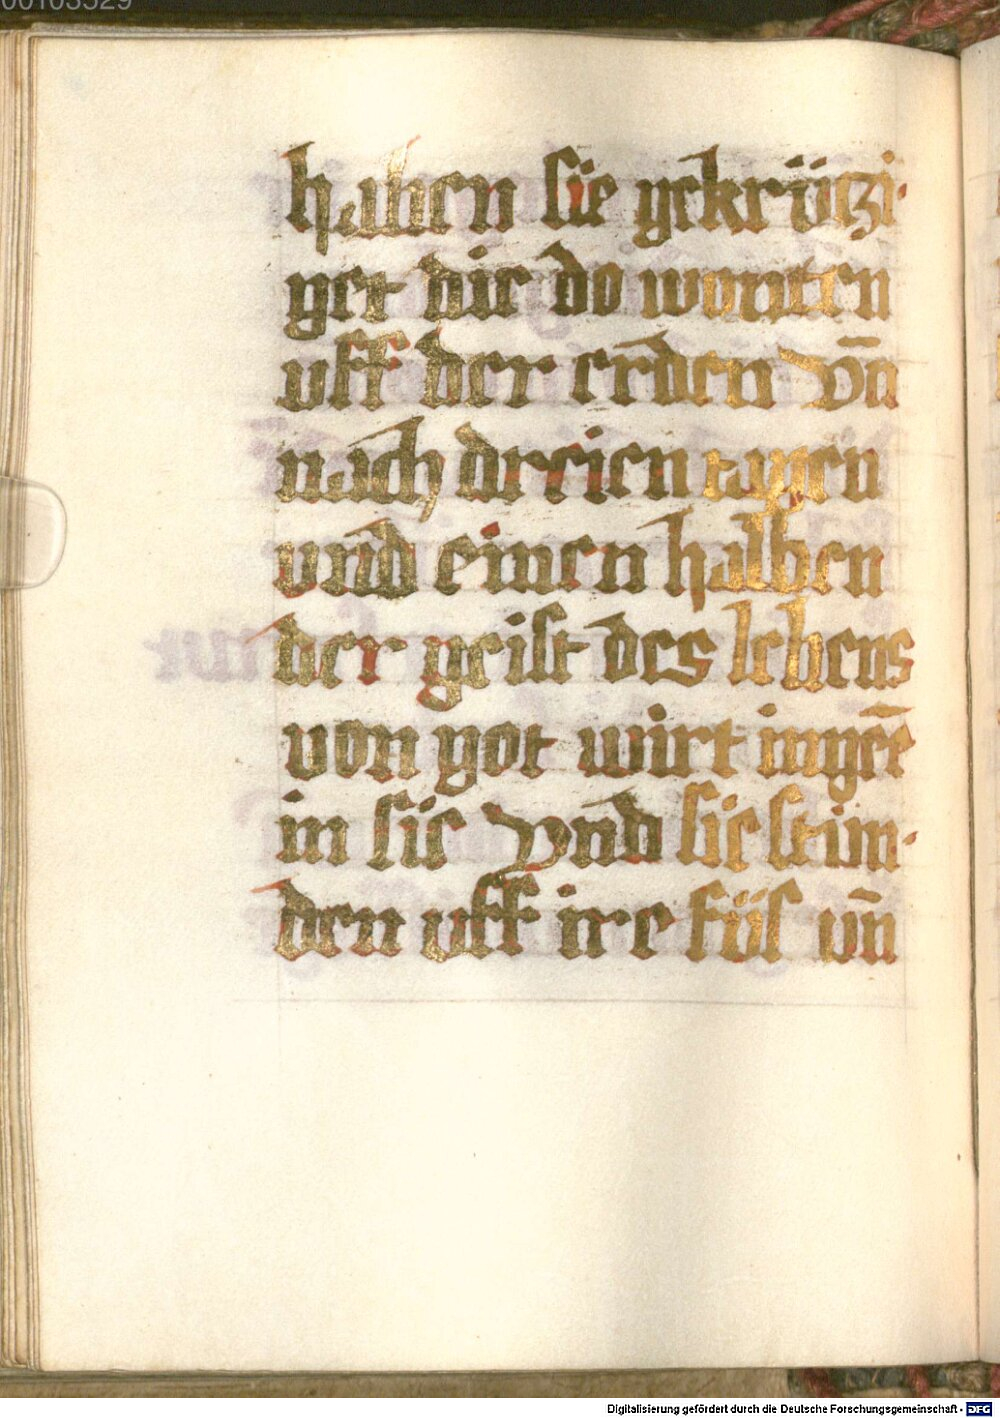 00103529
haben sie gekrützi·
get die do wonten
uff der erden vn̄
nach dreien tagen
vnd einen halben
der geist des lebens
von got wirt ingēt
in sie Vnd sie stun·
den uff ire füs vn̄
Digitalisierung gefördert durch die Deutsche Forschungsgemeinschaft - DFG